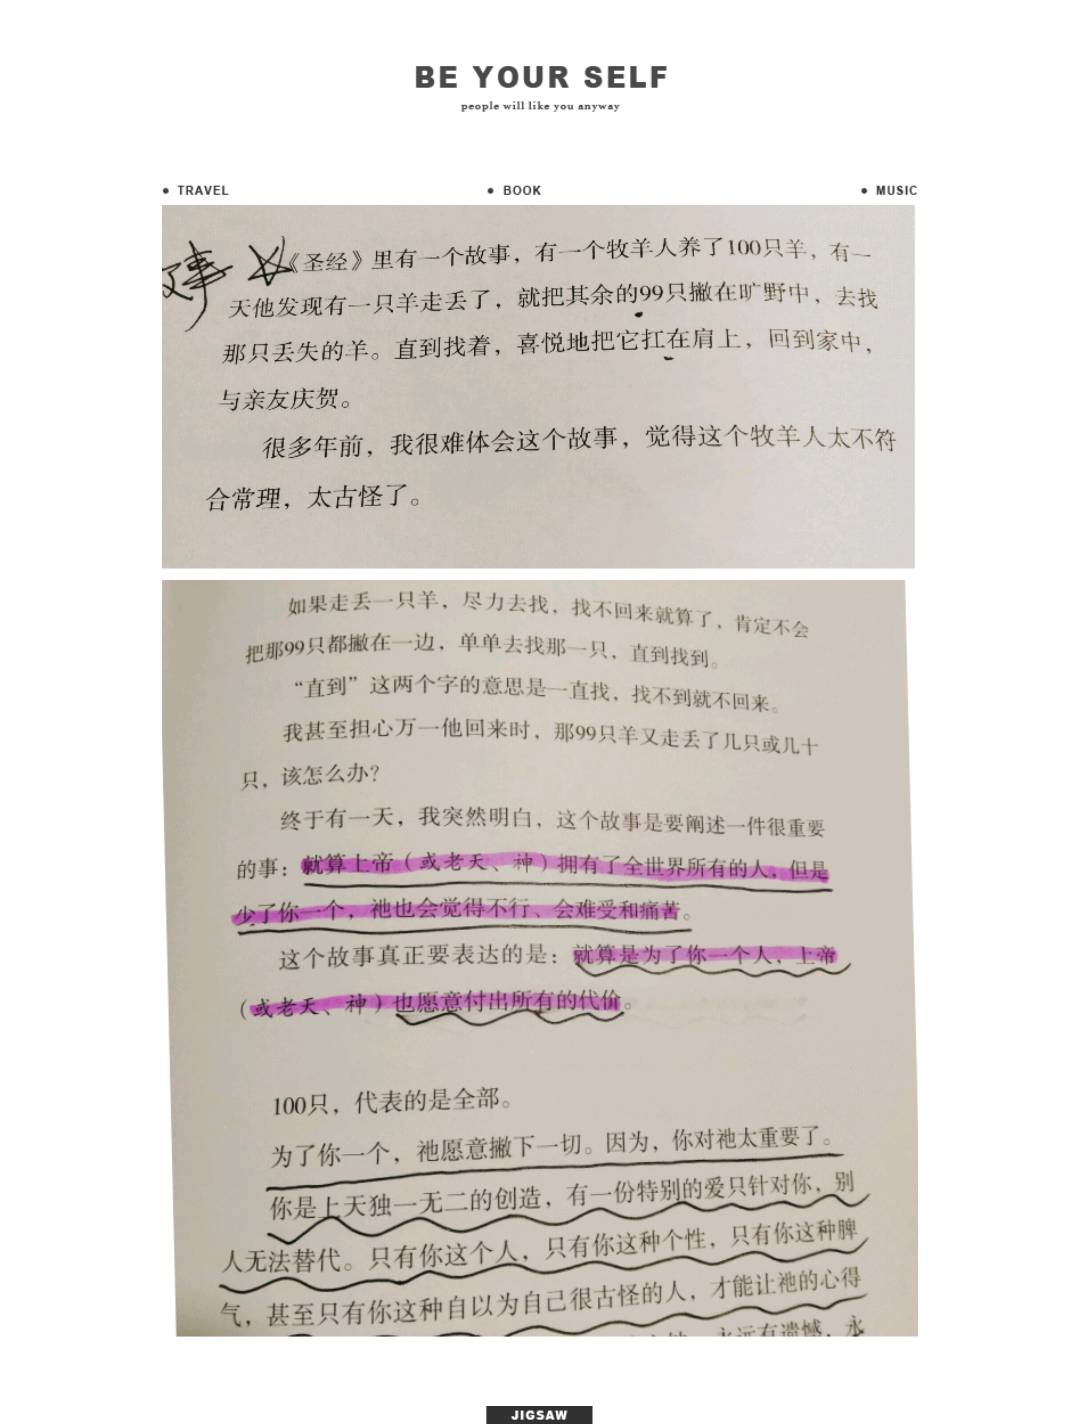 BE YOUR SELF
people will like you anyway
TRAVEL
BOOK
MUSIC
《圣经》里有一个故事，有一个牧羊人养了100只羊，有一
天他发现有一只羊走丢了，就把其余的99只撇在旷野中，去找
那只丢失的羊。直到找着，喜悦地把它扛在肩上，回到家中，
与亲友庆贺。
很多年前，我很难体会这个故事，觉得这个牧羊人太不符
合常理，太古怪了。
如果走丢一只羊，尽力去找，找不回来就算了，肯定不会
把那99只都撇在一边，单单去找那一只，直到找到。
“直到”这两个字的意思是一直找，找不到就不回来。
我甚至担心万一他回来时，那99只羊又走丢了几只或几十
只，该怎么办？
终于有一天，我突然明白，这个故事是要阐述一件很重要
的事：就算上帝（或老天、神）拥有了全世界所有的人，但是
少了你一个，祂也会觉得不行、会难受和痛苦。
这个故事真正要表达的是：就算是为了你一个人，上帝
（或老天、神）也愿意付出所有的代价。
100只，代表的是全部。
为了你一个，祂愿意撇下一切。因为，你对祂太重要了。
你是上天独一无二的创造，有一份特别的爱只针对你，别
人无法替代。只有你这个人，只有你这种个性，只有你这种脾
气，甚至只有你这种自以为自己很古怪的人，才能让祂的心得
永远有遗憾，永
JIGSAW